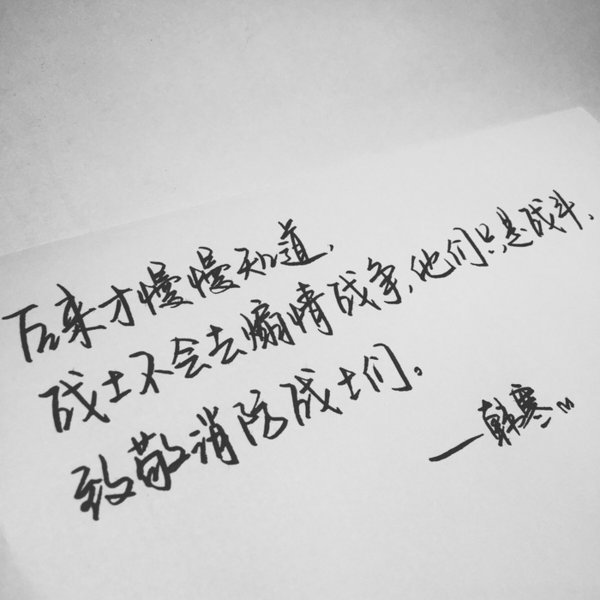 后来才慢慢知道,
战士不会去煽情战争,他们只是战斗.
致敬消防战士们。
—韩寒